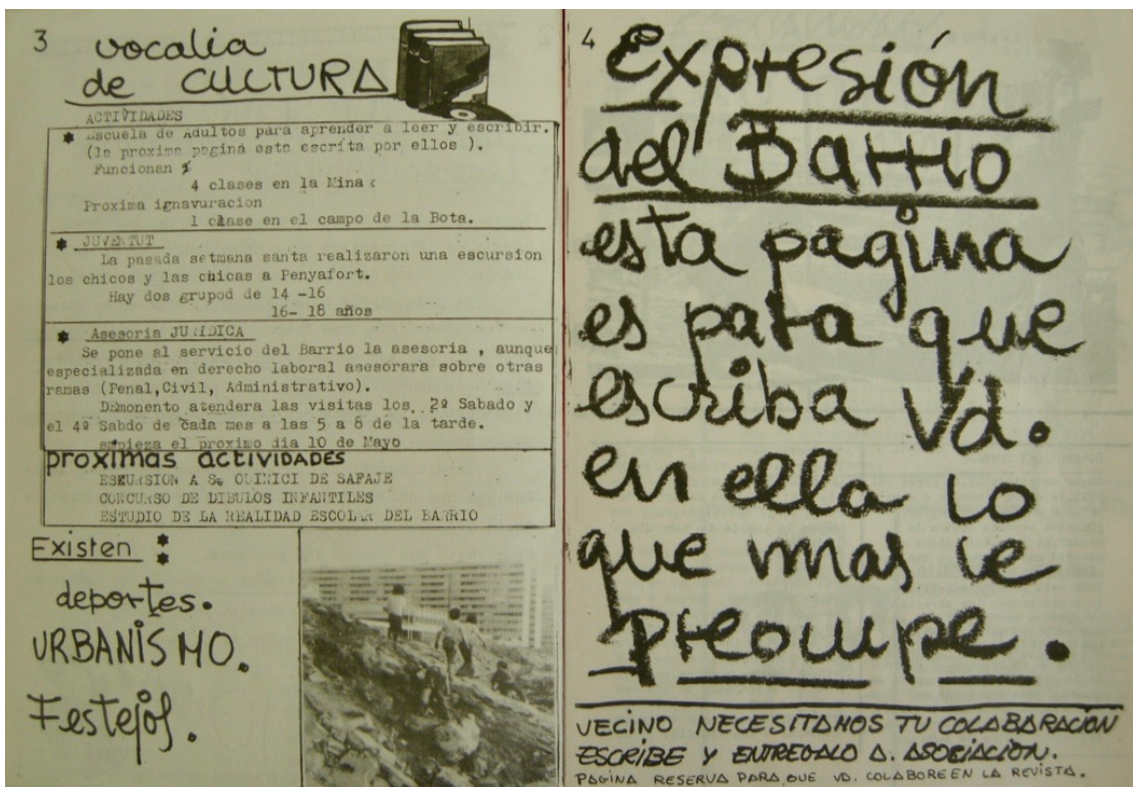 3
vocalia
de CULTURA
ACTIVIDADES
* Escuela de Adultos para aprender a leer y escribir.
(la proxima pagina esta escrita por ellos ).
Funcionan
4 clases en la Mina
Proxima ignavuracion
1 clase en el campo de la Bota.
* JUVENTUT
La pasada setmana santa realizaron una escursion
los chicos y las chicas a Penyafort.
Hay dos grupod de 14 -16
16- 18 años
* Asesoria JURIDICA
Se pone al servicio del Barrio la asesoria , aunque
especializada en derecho laboral asesorara sobre otras
ramas (Penal,Civil, Administrativo).
DEmonento atendera las visitas los.. 2º Sabado y
el 4º Sabdo de cada mes a las 5 a 8 de la tarde.
empieza el proximo dia 10 de Mayo
proximas actividades
ESKURSION A S. QUIRICI DE SAFAJE
CONCURSO DE DIBULOS INFANTILES
ESTUDIO DE LA REALIDAD ESCOLAR DEL BARRIO
Existen :
deportes.
URBANISMO.
Festejos.
4
Expresión
del Barrio
esta pagina
es para que
escriba Vd.
en ella lo
que mas le
preocupe.
VECINO NECESITAMOS TU COLABARACION
ESCRIBE Y ENTREGALO A. ASOCIACION.
PAGINA RESERVA PARA QUE VD. COLABORE EN LA REVISTA.